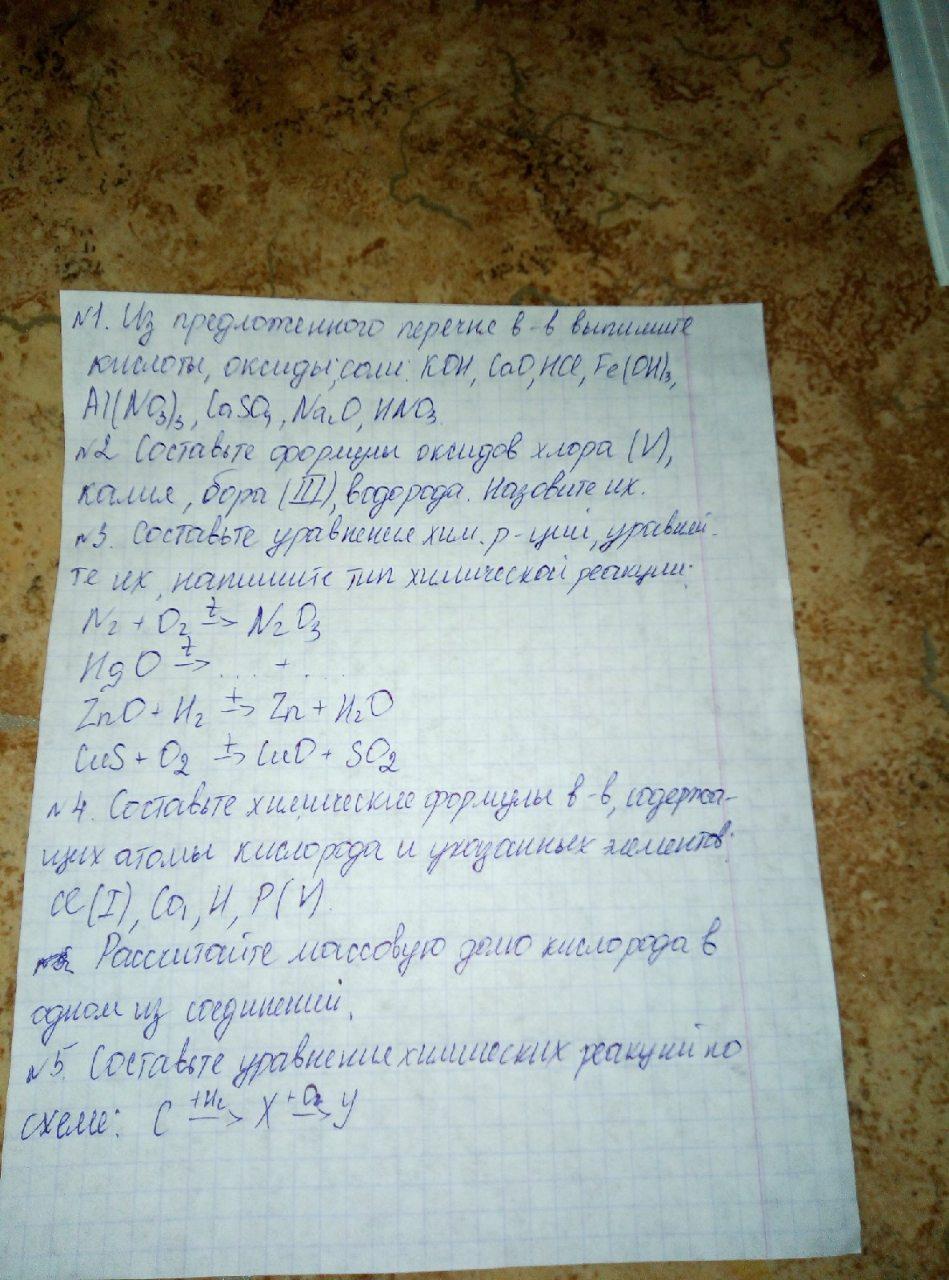 №1. Из предложенного перечня в-в выпишите
кислоты, оксиды, соли: KOH, CaO, HCl, Fe(OH)3,
Al(NO3)3, CaSO4, Na2O, HNO3.
№2 Составьте формулы оксидов хлора (V),
калия, бора (III), водорода. Назовите их.
№3. Составьте уравнения хим. р-ций, уравняй-
те их, напишите тип химической реакции:
N2 + O2 t→ N2O3
HgO t→ ... + ...
ZnO + H2 t→ Zn + H2O
CuS + O2 t→ CuO + SO2
№4. Составьте химические формулы в-в, содержа-
щих атомы кислорода и указанных элементов:
Cl(I), Ca, H, P(V).
Рассчитайте массовую долю кислорода в
одном из соединений.
№5. Составьте уравнение химических реакций по
схеме: C +H2→ X +O2→ Y